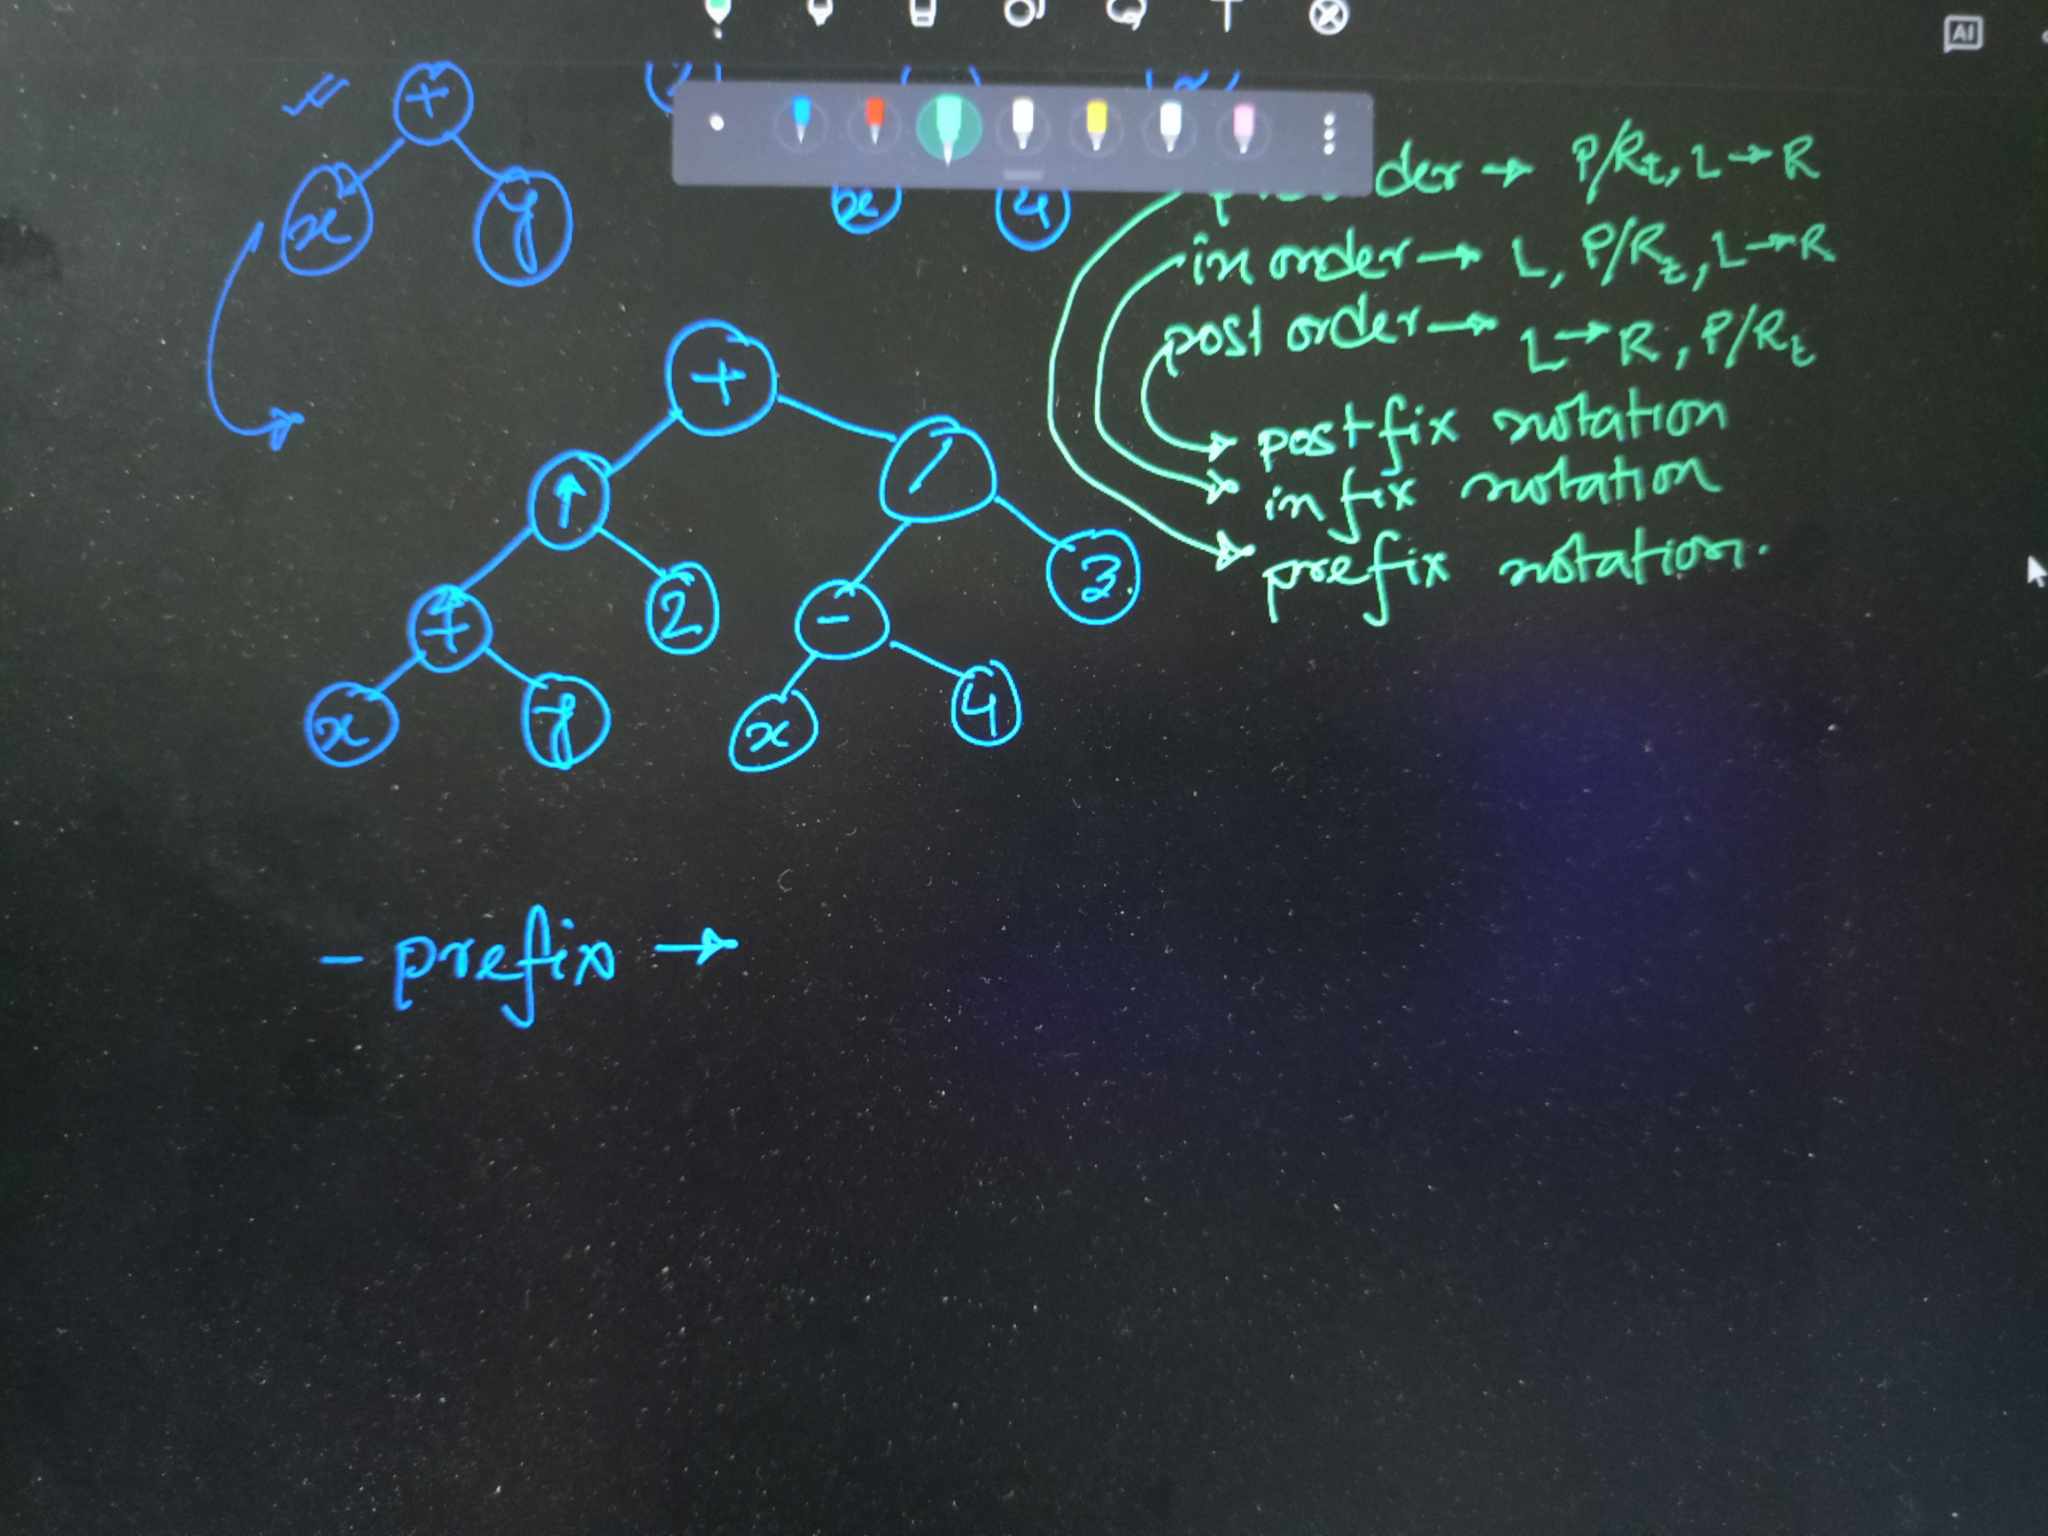 T
AI
+
x y
x 4
der → P/Rt, L → R
in order → L, P/Rt, L → R
post order → L → R, P/Rt
+
↑ /
+ 2 - 3
x y x 4
postfix notation
infix notation
prefix notation.
- prefix →